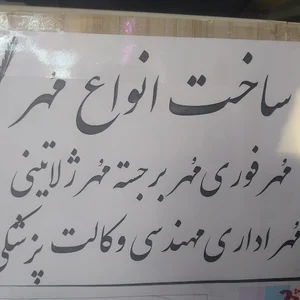 ساخت انواع مُهر
مُهر فوری مُهر برجسته مُهر ژلاتینی
مُهر اداری مهندسی وکالت پزشکی